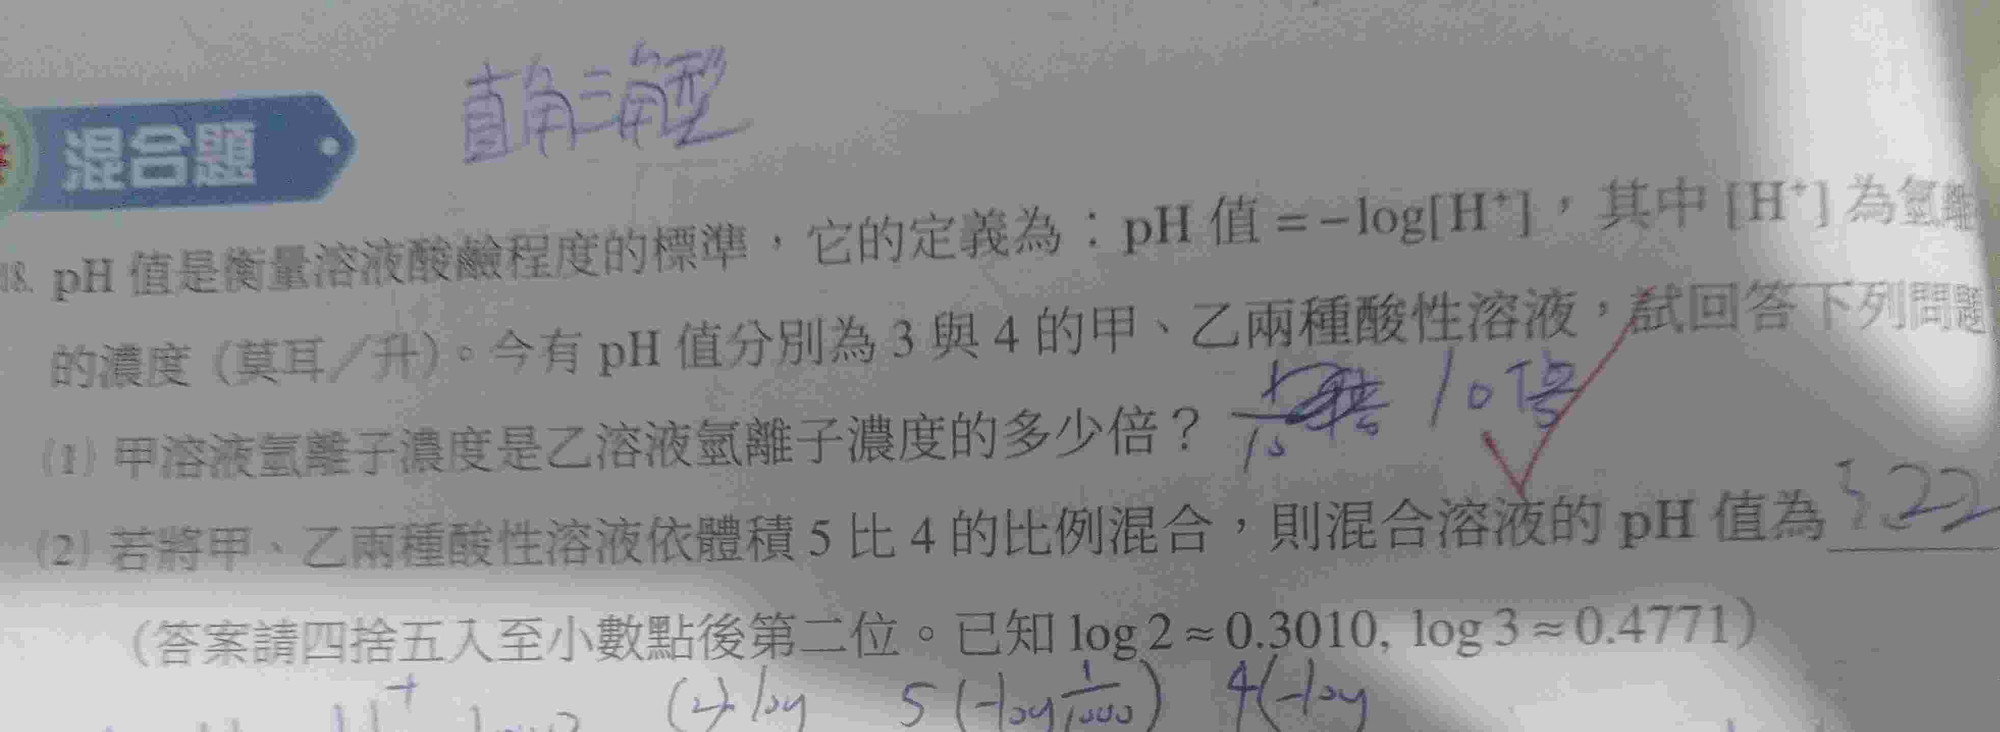 直角三角型
混合題
18. pH 值是衡量溶液酸鹼程度的標準，它的定義為：pH 值 = −log[H⁺]，其中 [H⁺] 為氫離
的濃度（莫耳／升）。今有 pH 值分別為 3 與 4 的甲、乙兩種酸性溶液，試回答下列問題
(1) 甲溶液氫離子濃度是乙溶液氫離子濃度的多少倍？ 10倍
(2) 若將甲、乙兩種酸性溶液依體積 5 比 4 的比例混合，則混合溶液的 pH 值為 3.22
（答案請四捨五入至小數點後第二位。已知 log 2 ≈ 0.3010, log 3 ≈ 0.4771）
(2) log 5 (-log 1/1000) 4(-log